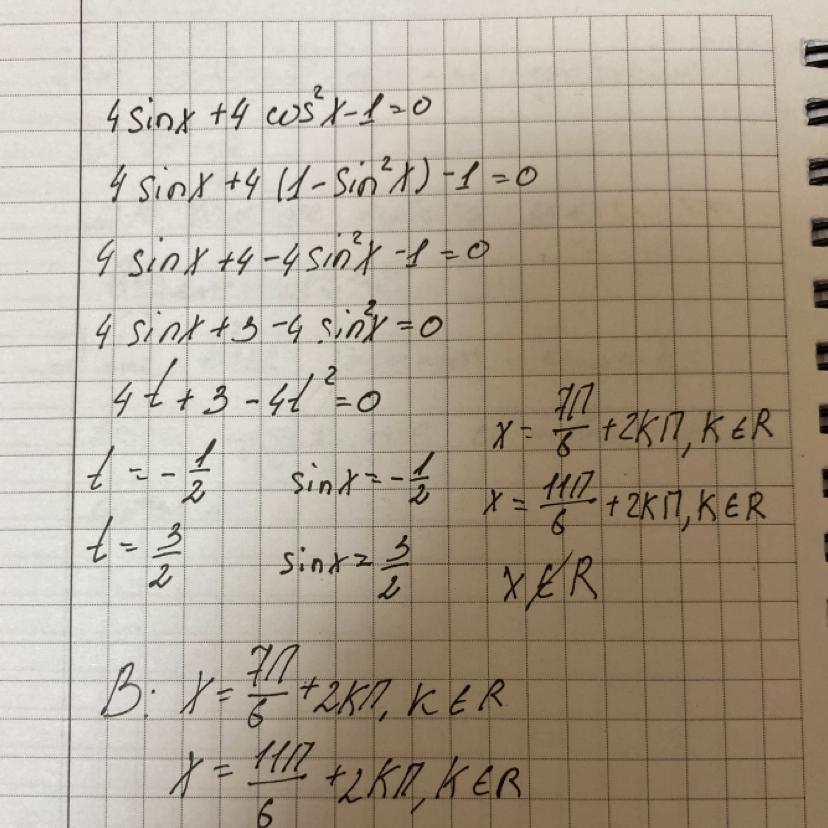 4 sinx + 4 cos²x - 1 = 0
4 sinx + 4 (1 - sin²x) - 1 = 0
4 sinx + 4 - 4 sin²x - 1 = 0
4 sinx + 3 - 4 sin²x = 0
4t + 3 - 4t² = 0
t = -1/2 sinx = -1/2 x = 7П/6 + 2КП, К ∈ R
x = 11П/6 + 2КП, К ∈ R
t = 3/2 sinx = 3/2 x ∉ R
В: x = 7П/6 + 2КП, К ∈ R
x = 11П/6 + 2КП, К ∈ R